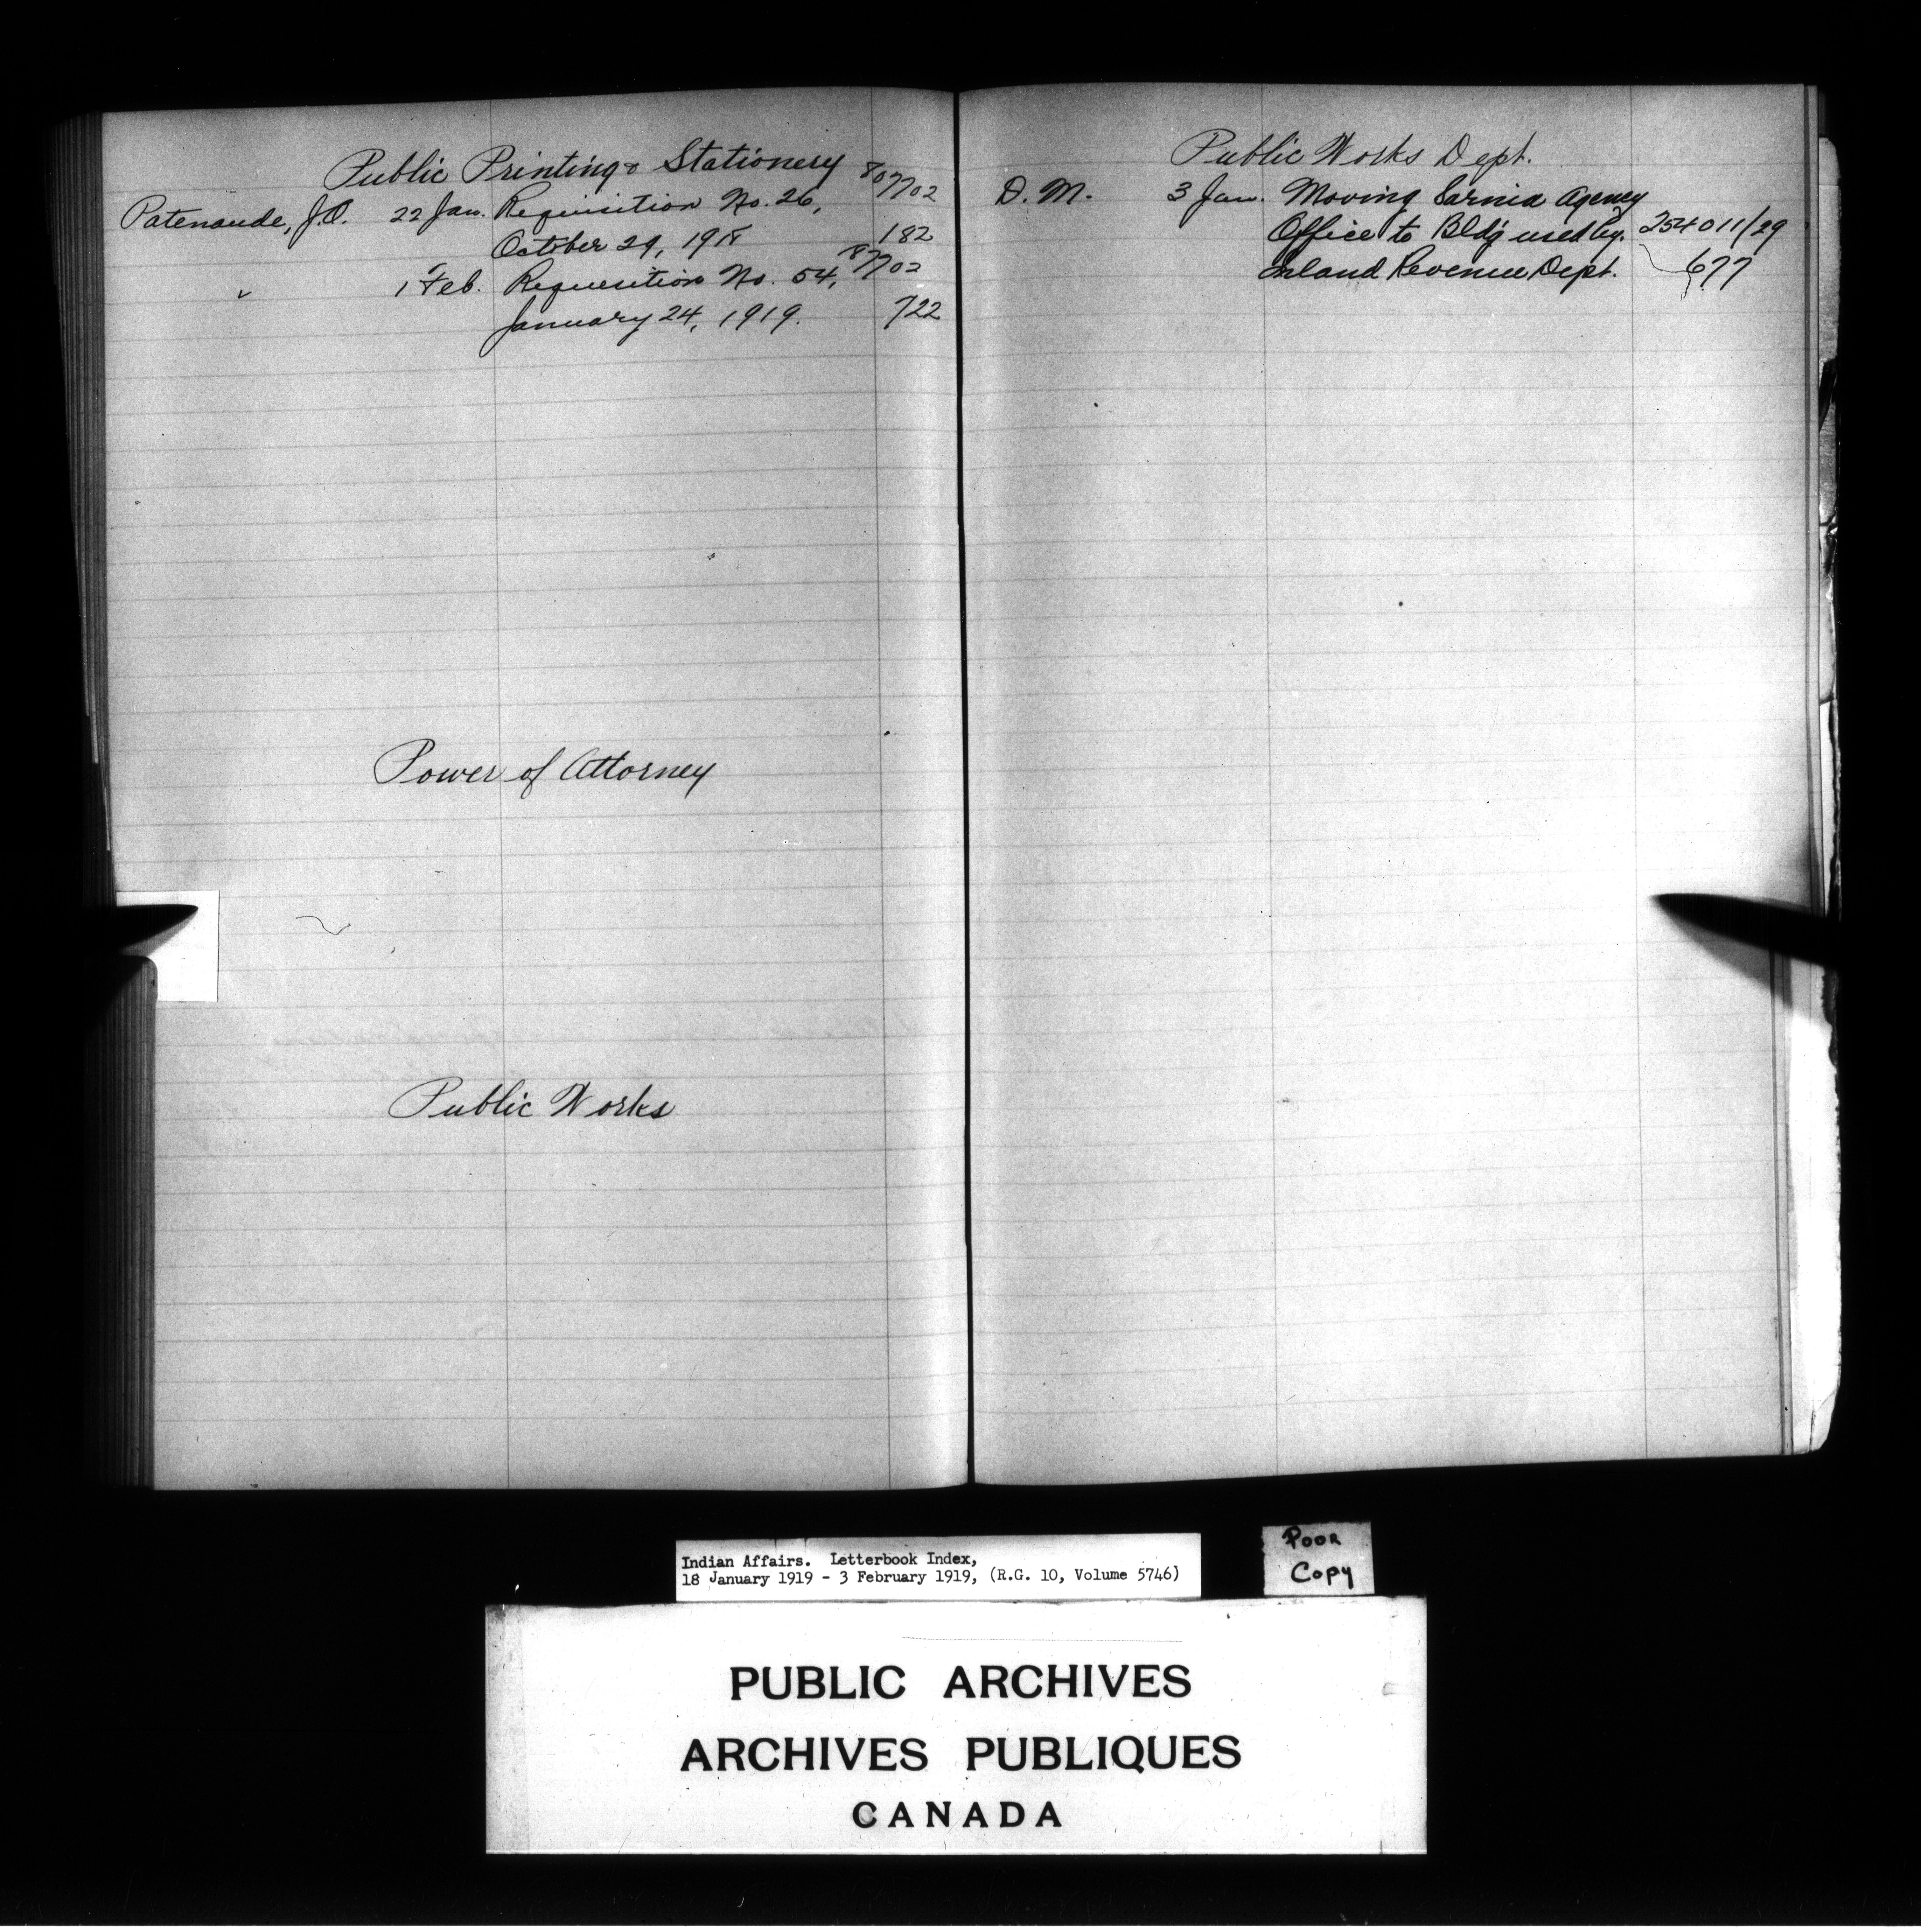 Public Printing & Stationery
Patenaude, J.O. 22 Jan. Requisition No. 26, 87702
October 29, 1918 182
" 1 Feb. Requisition No. 54, 87702
January 24, 1919. 722
Power of Attorney
Public Works
Public Works Dept.
D.M. 3 Jan. Moving Sarnia Agency
Office to Bldg used by 254011/29
Inland Revenue Dept. 677
Indian Affairs. Letterbook Index,
18 January 1919 - 3 February 1919, (R.G. 10, Volume 5746)
Poor
Copy
PUBLIC ARCHIVES
ARCHIVES PUBLIQUES
CANADA